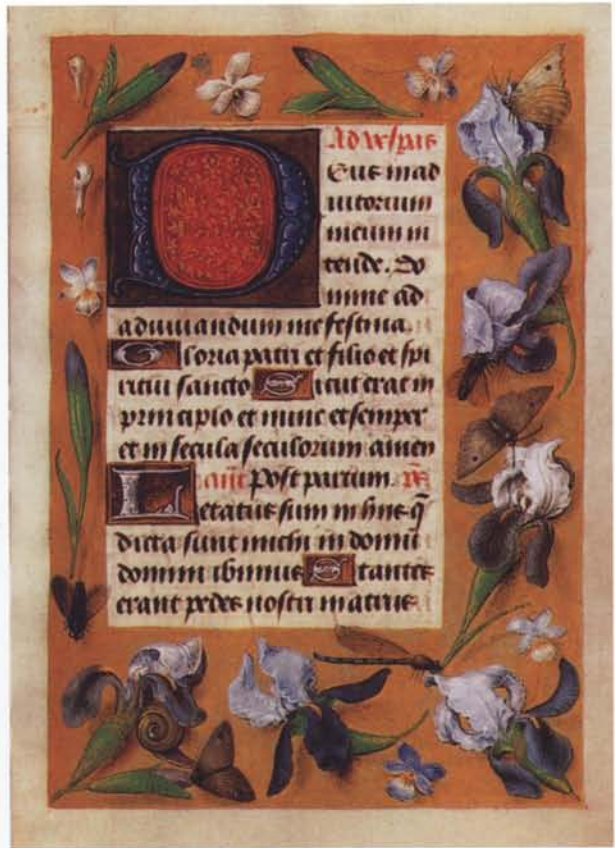 Ad vesp̄as
Deus in ad
iutorium
meum in
tende. Do
mine ad
adiuuandum me festina.
Gloria patri et filio et spi
ritui sancto Sicut erat in
principio et nunc et semper
et in secula seculorum amen
añt Post partum. p̄s
Letatus sum in hiis q̄
dicta sunt michi in domū
domini ibimus Stantes
erant pedes nostri in atriis